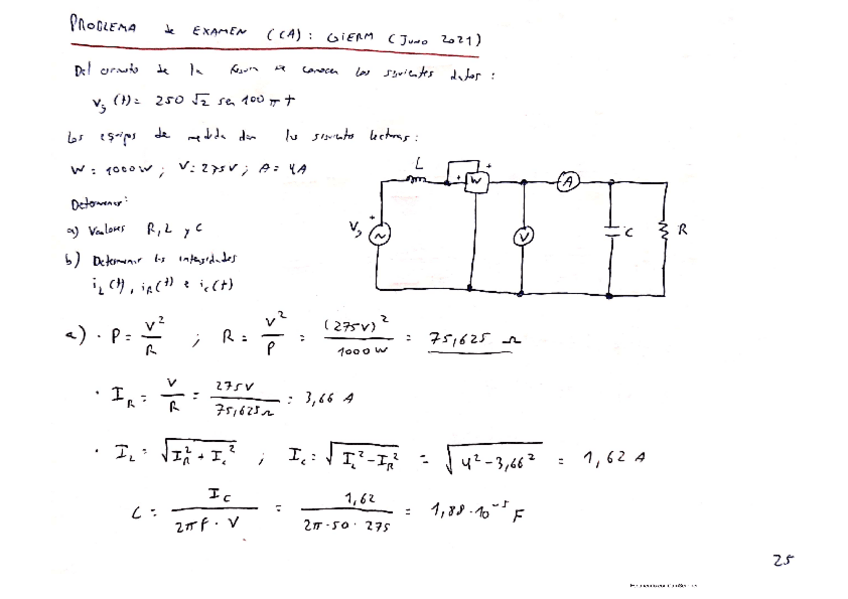 PROBLEMA de EXAMEN (CA): GIERM (Junio 2021)
Del circuito de la figura se conocen los siguientes datos:
Vg (t) = 250 √2 sen 100 π t
Los equipos de medida dan las siguientes lecturas:
W = 1000 W ; V: 275 V ; A = 4 A
Determinar:
a) Valores R, L y C
b) Determinar las intensidades
iL (t), iR (t) e ic (t)
L
+
+ W
A
+
Vg
V
C
R
a) · P = V² / R ; R = V² / P = (275 V)² / 1000 W = 75,625 Ω
· IR = V / R = 275 V / 75,625 Ω = 3,66 A
· IL = √(IR² + Ic²) ; Ic = √(IL² - IR²) = √(4² - 3,66²) = 1,62 A
C = Ic / 2πf · V = 1,62 / 2π · 50 · 275 = 1,88 · 10⁻⁵ F
25